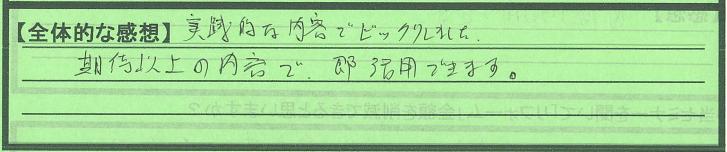 【全体的な感想】実践的な内容でビックリしました.
期待以上の内容で、即活用できます。